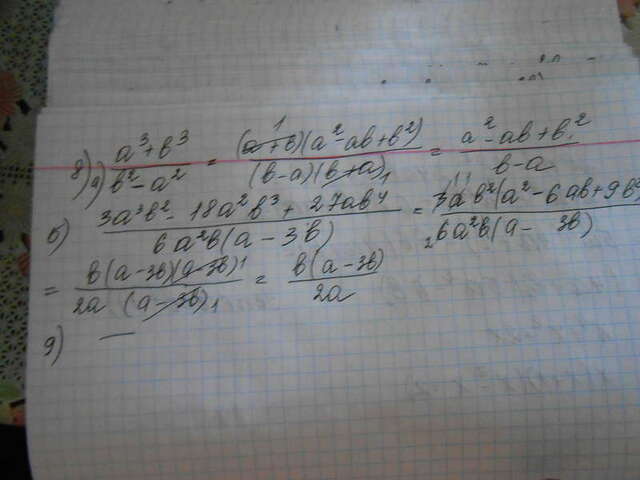 8) a) a³+b³ / b²−a² = (a+b)¹(a²−ab+b²) / (b−a)(b+a)₁ = a²−ab+b² / b−a
б) 3a³b²−18a²b³+27ab⁴ / 6a²b(a−3b) = 3ab²(a²−6ab+9b² / ₂6a²b(a−3b)
= b(a−3b)(a−3b)¹ / 2a (a−3b)₁ = b(a−3b) / 2a
9) —